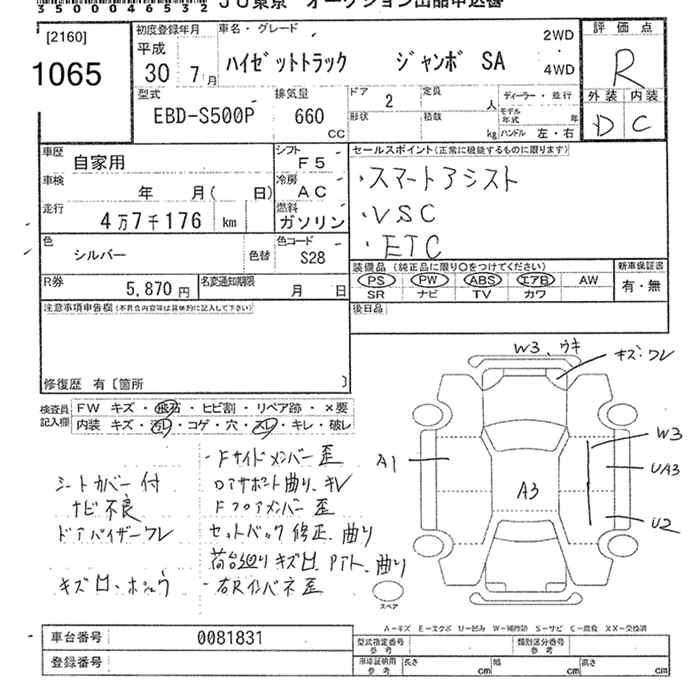 350004653
JU東京 オークション出品申込書
[2160]
1065
初度登録年月
平成
30年 7月
車名・グレード
ハイゼットトラック ジャンボ SA
2WD
4WD
評価点
R
外装 内装
D C
型式
EBD-S500P
排気量
660
CC
ドア
2
定員
人
形状
積載
kg
ディーラー・並行
モデル年式 年
ハンドル 左・右
車歴
自家用
シフト
F5
車検
年 月( 日)
冷房
AC
走行
4万7千176 km
燃料
ガソリン
色
シルバー
色替
色コード
S28
R券
5,870円
名変通知期限
月 日
セールスポイント(正常に機能するものに限ります)
・スマートアシスト
・VSC
・ETC
装備品 (純正品に限り○をつけてください)
PS PW ABS エアB AW
SR ナビ TV カワ
新車保証書
有・無
後日品
注意事項申告欄(不具合内容等は具体的に記入して下さい)
修復歴 有〔箇所 〕
検査員記入欄
FW キズ・飛石・ヒビ割・リペア跡・×要
内装 キズ・汚レ・コゲ・穴・スレ・キレ・破レ
W3、ウキ
キズ・ワレ
A1
W3
UA3
A3
U2
スペア
シートカバー付
ナビ不良
ドアバイザーワレ
・Fサイドメンバー歪
Fフロアメンバー歪
セットバック修正、曲り
車台番号 0081831
登録番号
A-キズ E-エクボ U-凹み W-補修跡 S-サビ C-腐食 XX-交換済
型式指定番号 参考
類別区分番号 参考
車庫証明用 参考
長さ cm 幅 cm 高さ cm